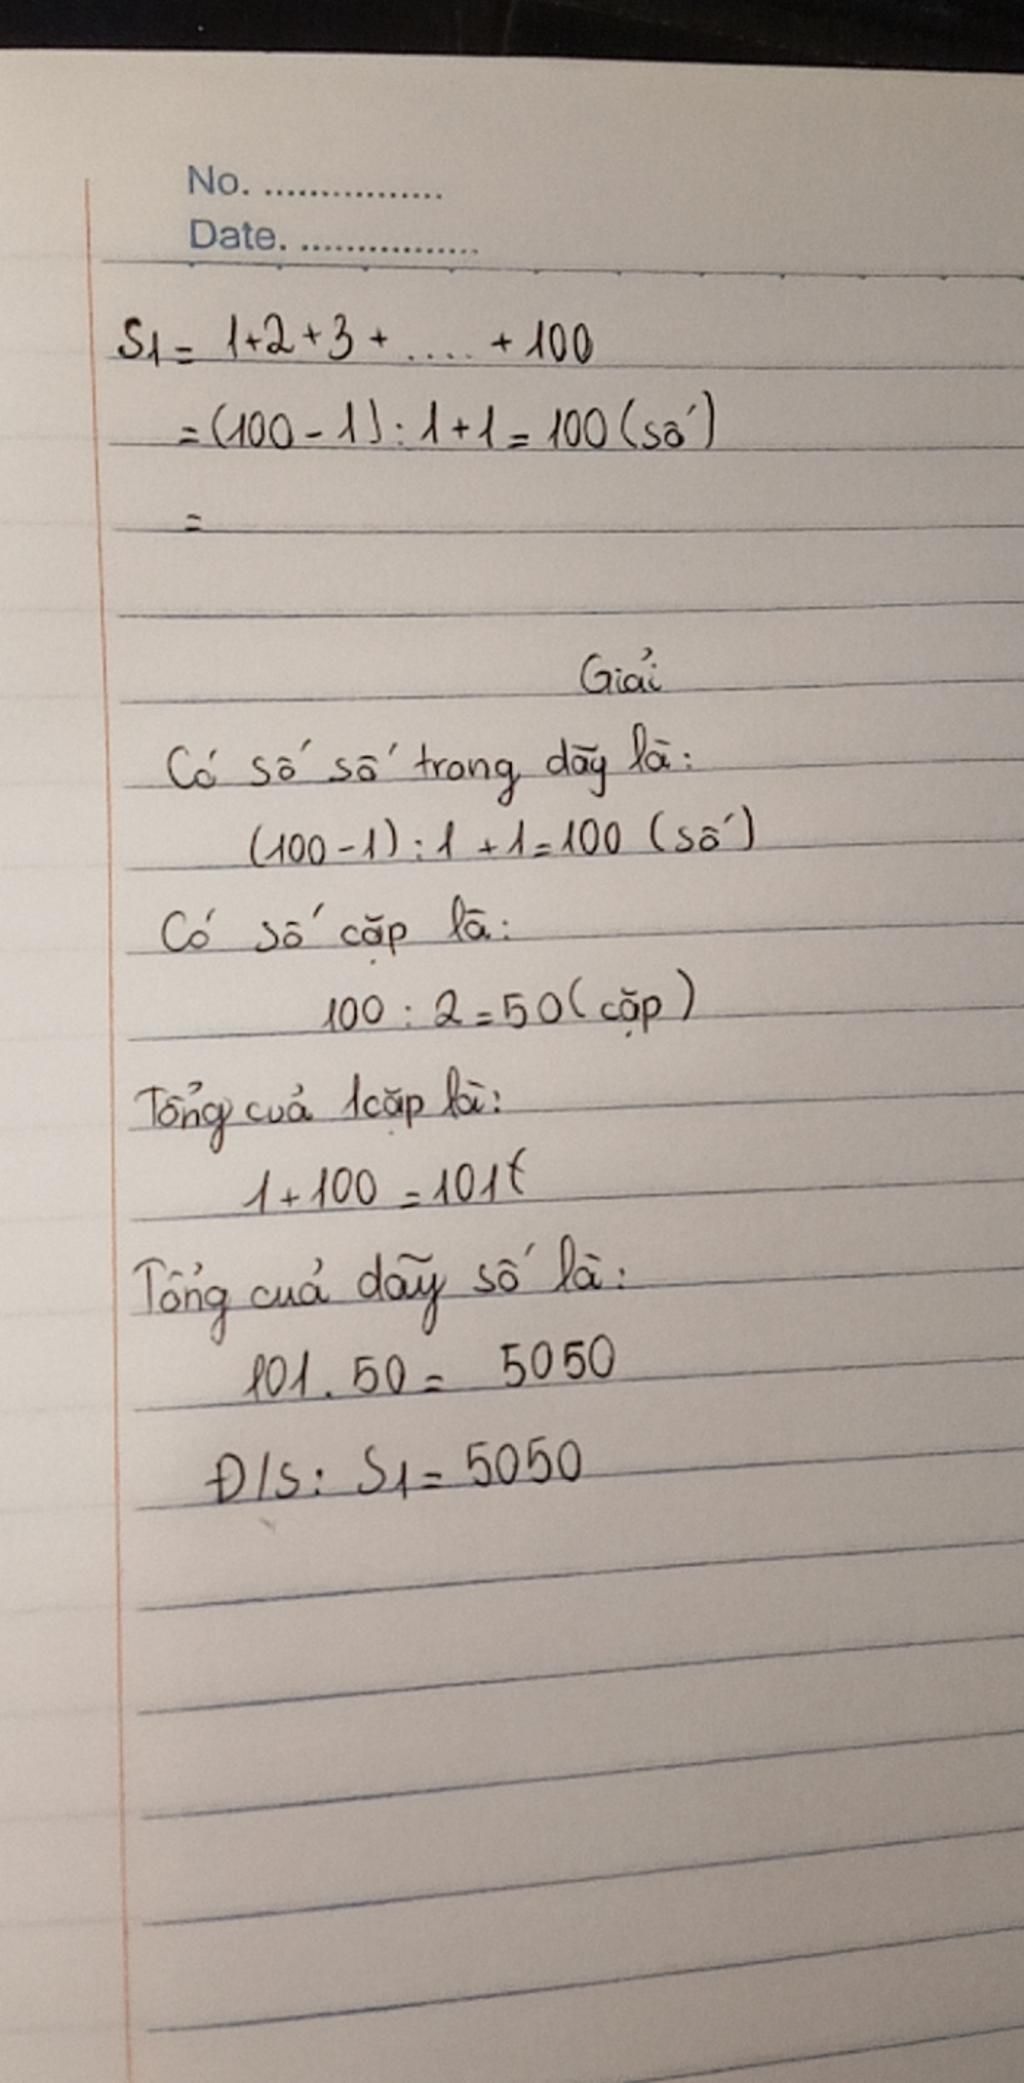 No. ................
Date. ................
S1 = 1+2+3+ ..... +100
= (100-1) : 1+1 = 100 (số)
=
Giải
Có số số trong dãy là:
(100-1) : 1 +1 = 100 (số)
Có số cặp là:
100 : 2 = 50 (cặp)
Tổng của 1 cặp là:
1+100 = 101
Tổng của dãy số là:
101 . 50 = 5050
Đ/S: S1 = 5050